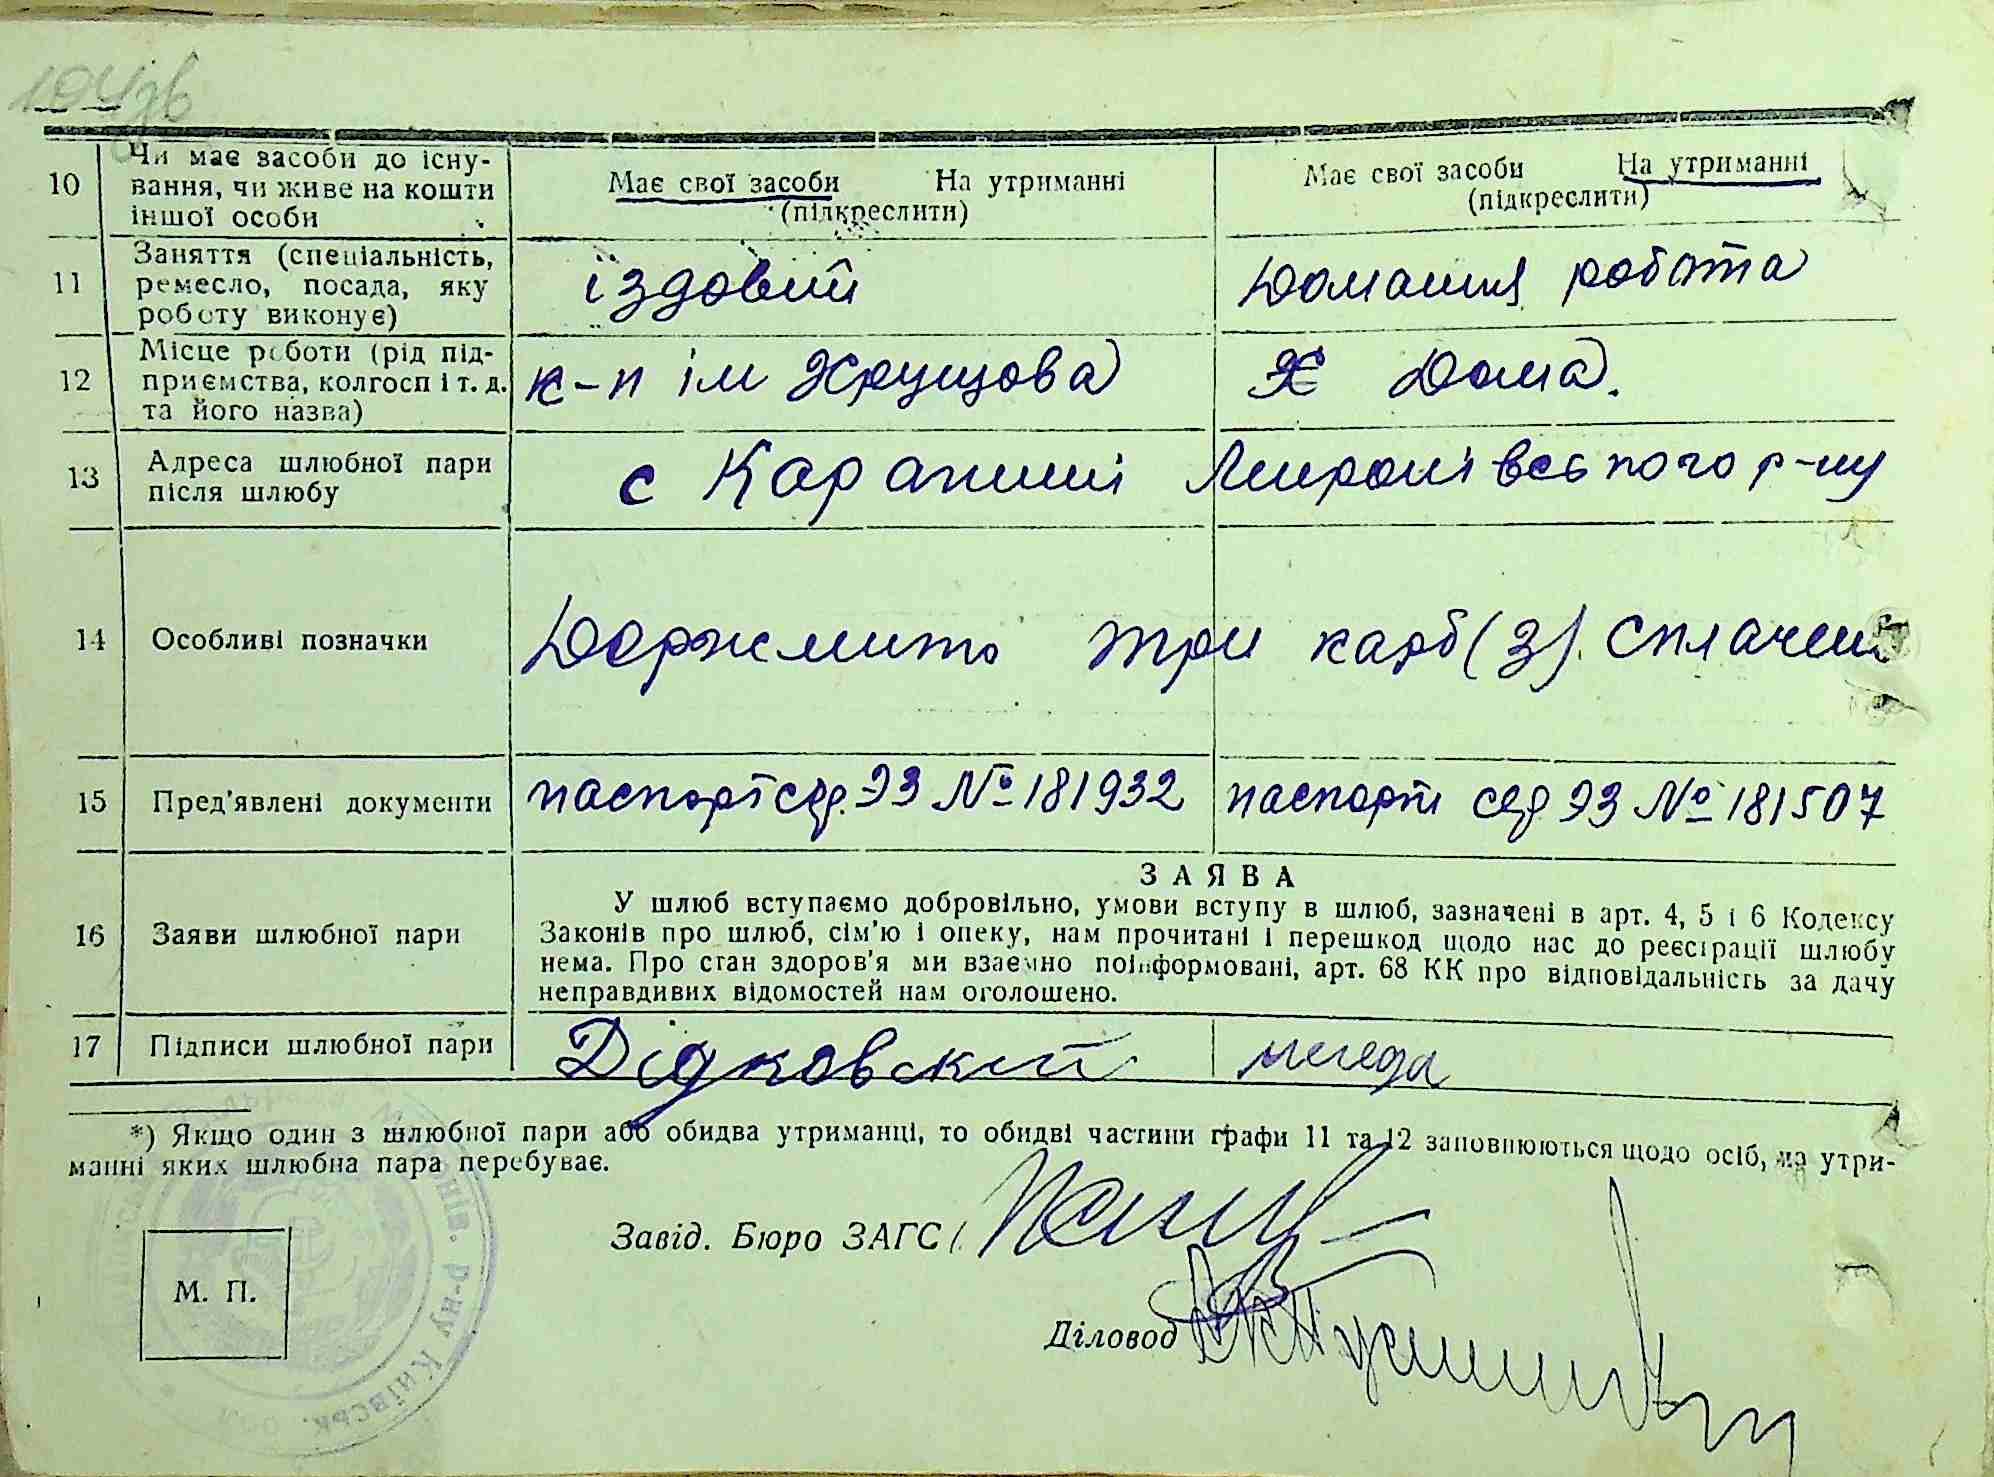 104зв
10 Чи має засоби до існу-
вання, чи живе на кошти
іншої особи
Має свої засоби На утриманні
(підкреслити)
Має свої засоби На утриманні
(підкреслити)
11 Заняття (спеціальність,
ремесло, посада, яку
роботу виконує)
їздовий
Домашня робота
12 Місце роботи (рід під-
приємства, колгосп і т. д.
та його назва)
к-п ім Хрущова
Дома.
13 Адреса шлюбної пари
після шлюбу
с Карапиші Миронівського р-ну
14 Особливі позначки
Держмито три карб (3). сплачен
15 Пред'явлені документи
паспорт сер. ЭЗ № 181932
паспорт сер ЭЗ № 181507
16 Заяви шлюбної пари
ЗАЯВА
У шлюб вступаємо добровільно, умови вступу в шлюб, зазначені в арт. 4, 5 і 6 Кодексу
Законів про шлюб, сім'ю і опеку, нам прочитані і перешкод щодо нас до реєстрації шлюбу
нема. Про стан здоров'я ми взаємно поінформовані, арт. 68 КК про відповідальність за дачу
неправдивих відомостей нам оголошено.
17 Підписи шлюбної пари
Дідковский
мегеда
*) Якщо один з шлюбної пари або обидва утриманці, то обидві частини графи 11 та 12 заповнюються щодо осіб, на утри-
манні яких шлюбна пара перебуває.
Завід. Бюро ЗАГС
М. П.
Діловод
р-ну Київськ. обл